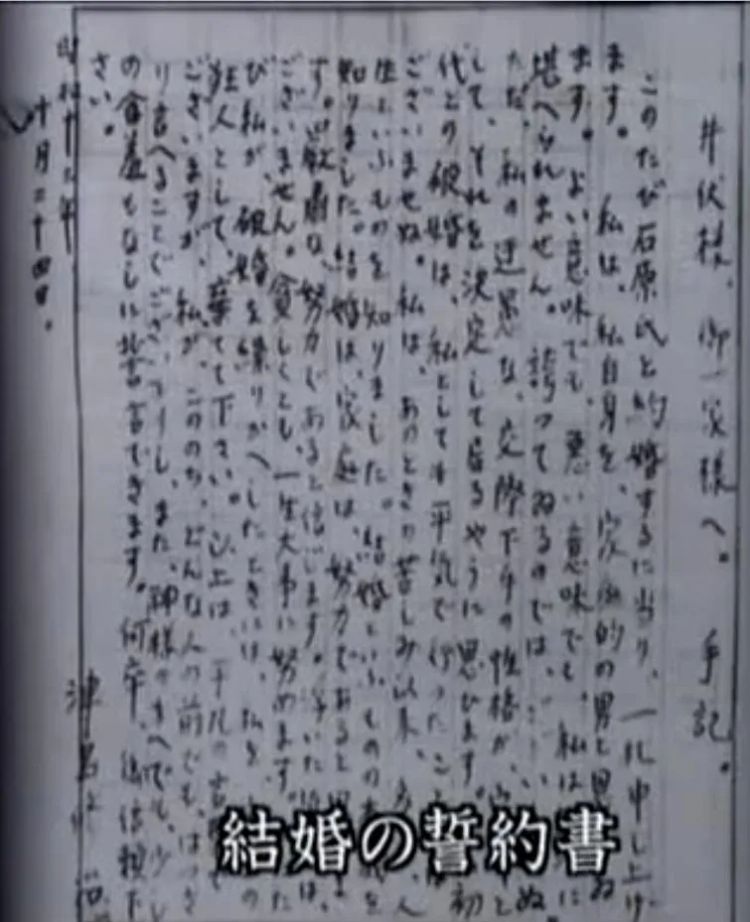 井伏様、御一家様へ。 手記。
このたび石原氏と約婚するに当り、一札申し上げ
ます。私は、私自身を、家庭的の男と思
ます。よい意味でも、悪い意味でも、私は に
堪へられません。誇ってゐるのでは、 ぬ。
ただ、私の迂愚な、交際下手の性格が、 と
して、それを決定して居るやうに思ひます。 初
代との破婚は、私としても平気で行ったこ
ございませぬ。私は、あのときの苦しみ以来、 人
生といふものを知りました。結婚といふものの本義を
知りました。結婚は、家庭は、努力であると思
す。厳粛な、努力であると信じます。浮いた は、
ございません。貧しくとも、一生大事に努めます。 た
び私が、破婚を繰りかへしたときには、私を、 の
狂人として、棄てて下さい。以上は、平凡の言 で
ございますが、私が、こののち、どんな人の前でも、はっき
り言へることでございますし、また、神様のまへでも、少し
の含羞もなしに誓言できます。何卒、御信頼下
さい。
昭和十三年
十月二十四日。
津島修治
結婚の誓約書